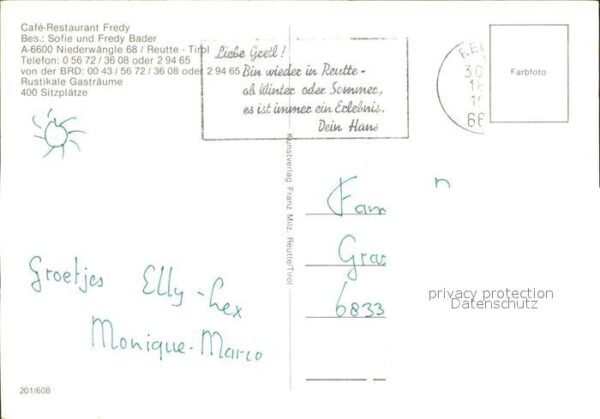 Café-Restaurant Fredy
Bes.: Sofie und Fredy Bader
A-6600 Niederwängle 68 / Reutte - Tirol
Telefon: 0 56 72 / 36 08 oder 2 94 65
von der BRD: 00 43 / 56 72 / 36 08 oder 2 94 65
Rustikale Gasträume
400 Sitzplätze
Liebe Gretl!
Bin wieder in Reutte -
ob Winter oder Sommer,
es ist immer ein Erlebnis.
Dein Hans
Farbfoto
Kunstverlag Franz Milz, Reutte/Tirol
Groetjes Elly - Lex
Monique - Marco
Fam
Gras
6833
privacy protection
Datenschutz
201/608